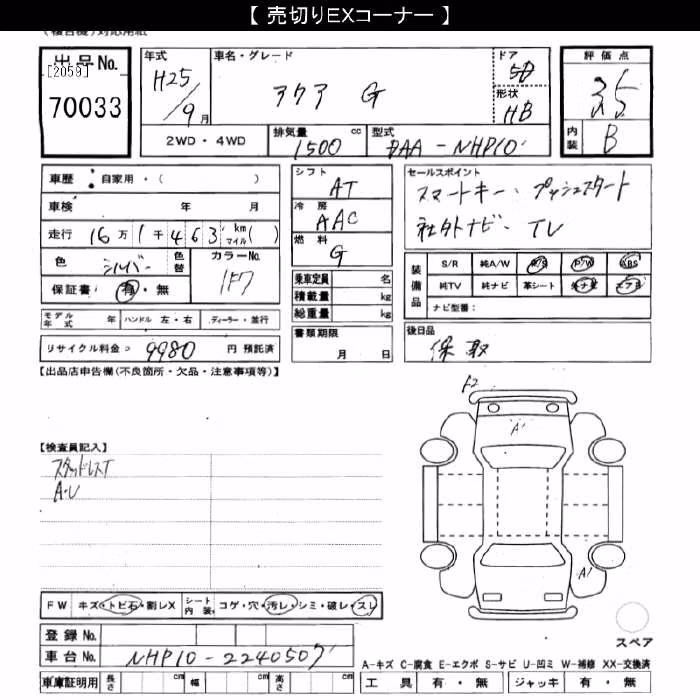 【 売切りEXコーナー 】
出品No.
[2059]
70033
年式
H25/9月
車名・グレード
アクア G
ドア
5D
形状
HB
評価点
3.5
内装
B
2WD・4WD
排気量
1500 cc
型式
DAA-NHP10
車歴 : 自家用・( )
車検 年 月
走行 16万1千463 km マイル( )
色 シルバー 色替
カラーNo. 1F7
保証書 : 有・無
シフト
AT
冷房
AAC
燃料
G
セールスポイント
スマートキー・プッシュスタート
社外ナビ・TV
乗車定員 名
積載量 kg
総重量 kg
装備品
S/R 純A/W P/S P/W ABS
純TV 純ナビ 革シート エアB
ナビ型番 :
モデル年式 年 ハンドル 左・右 ディーラー・並行
リサイクル料金 : 9980 円 預託済
書類期限
月 日
後日品
保 取
【出品店申告欄(不良箇所・欠品・注意事項等)】
【検査員記入】
スタッドレスT
A・U
F2
A1
A1
FW キズ・トビ石・割レX シート内装 コゲ・穴・汚レ・シミ・破レ・スレ
スペア
登録No.
車台No. NHP10-2240507
A-キズ C-腐食 E-エクボ S-サビ U-凹ミ W-補修 XX-交換済
車庫証明用 長さ cm 幅 cm 高さ cm
工具 有・無 ジャッキ 有・無